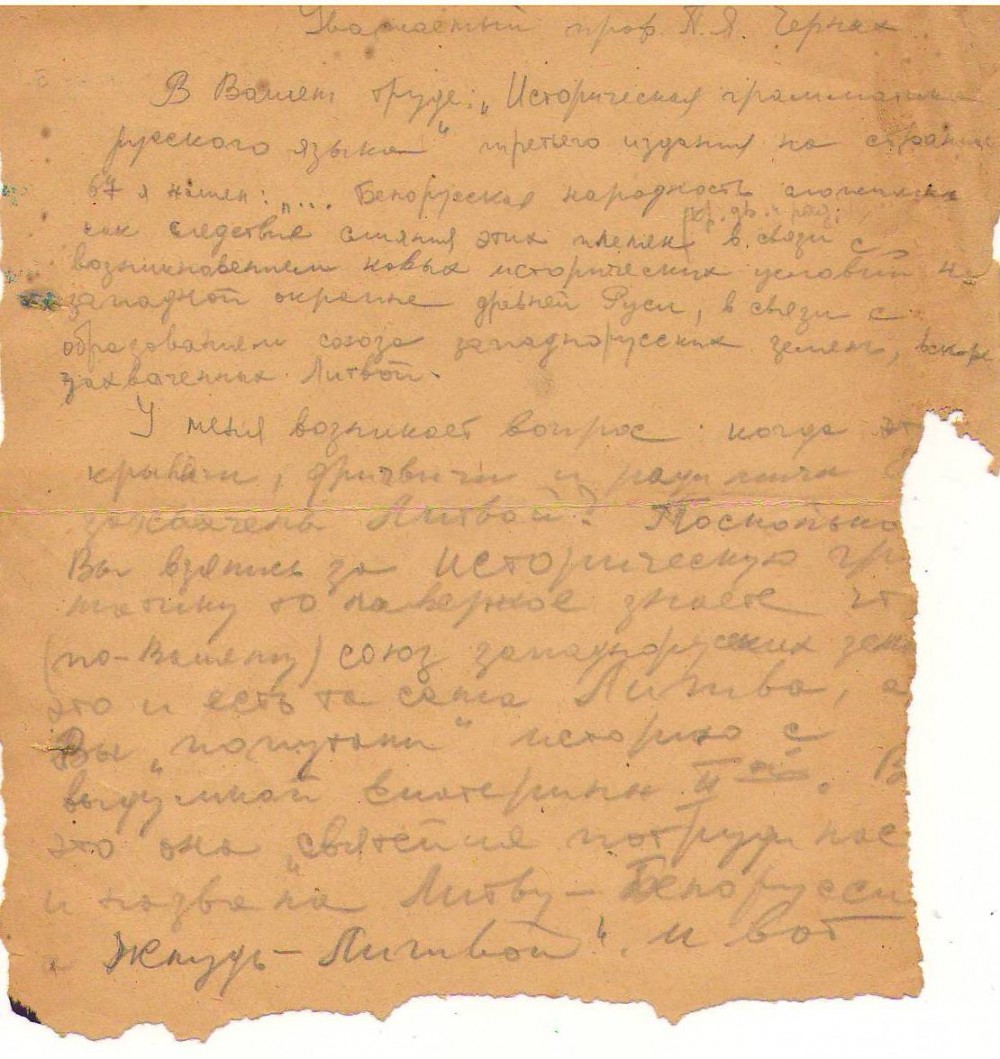 Уважаемый проф. П.Я. Черных
В Вашем труде: „Историческая грамматика
русского языка" третьего издания на странице
67 я нашел: „... Белорусская народность сложилась
как следствие слияния этих племен в связи с
возникновением новых исторических условий на
западной окраине древней Руси, в связи с
образованием союза западнорусских земель, вскоре
захваченных Литвой.
У меня возникает вопрос: когда эт
кривичи, дригвичи и радимичи
захвачены Литвой? Поскольку
Вы взялись за историческую гра
матику то наверное знаете чт
(по-Вашему) союз западнорусских земе
это и есть та сама Литва, а
Вы „попутали" историю с
выдумкой Екатерины II ой. В
это она „святейшая потруди
и назвала Литву – Белорусси
а Жмудь – Литвой". И вот